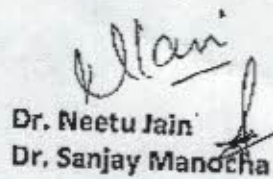 Dr. Neetu Jain
Dr. Sanjay Manocha